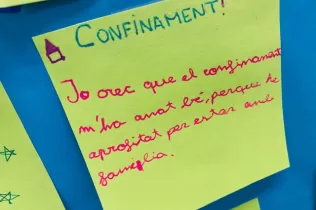 CONFINAMENT!
Jo crec que el confinament
m'ha anat bé, perquè he
aprofitat per estar amb
família.